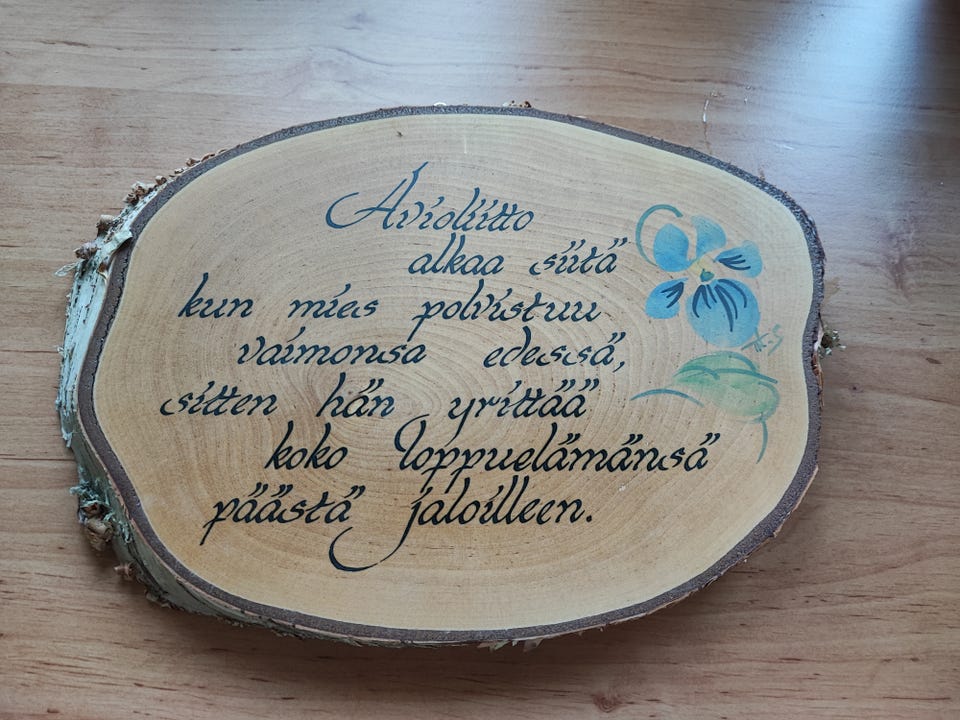 Avioliitto
alkaa siitä
kun mies polvistuu
vaimonsa edessä,
sitten hän yrittää
koko loppuelämänsä
päästä jaloilleen.